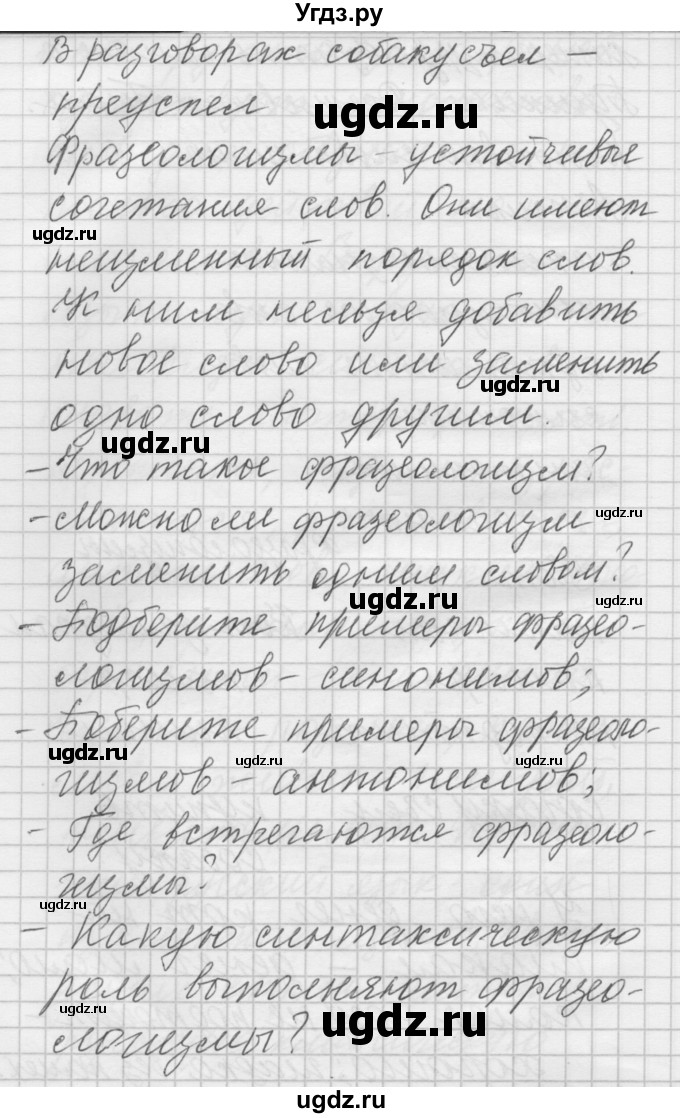 Угдз.ру
В разговорах собаку съел —
преуспел
ugdz.ru
Фразеологизмы – устойчивые
сочетания слов. Они имеют
ugdz.ru
неизменный порядок слов.
К ним нельзя добавить
новое слово или заменить
ugdz.ru
одно слово другим.
ugdz.ru
– Что такое фразеологизм?
– Можно ли фразеологизм
ugdz.ru
заменить одним словом?
ugdz.ru
ugdz.ru
– Подберите примеры фразео-
логизмов – синонимов;
– Поберите примеры фразеоло-
ugdz.ru
ugdz.ru
гизмов – антонимов;
– Где встречаются фразеоло-
гизмы?
ugdz.ru
– Какую синтаксическую
роль выполняют фразео-
ugdz.ru
ugdz.ru
логизмы?
ugdz.ru